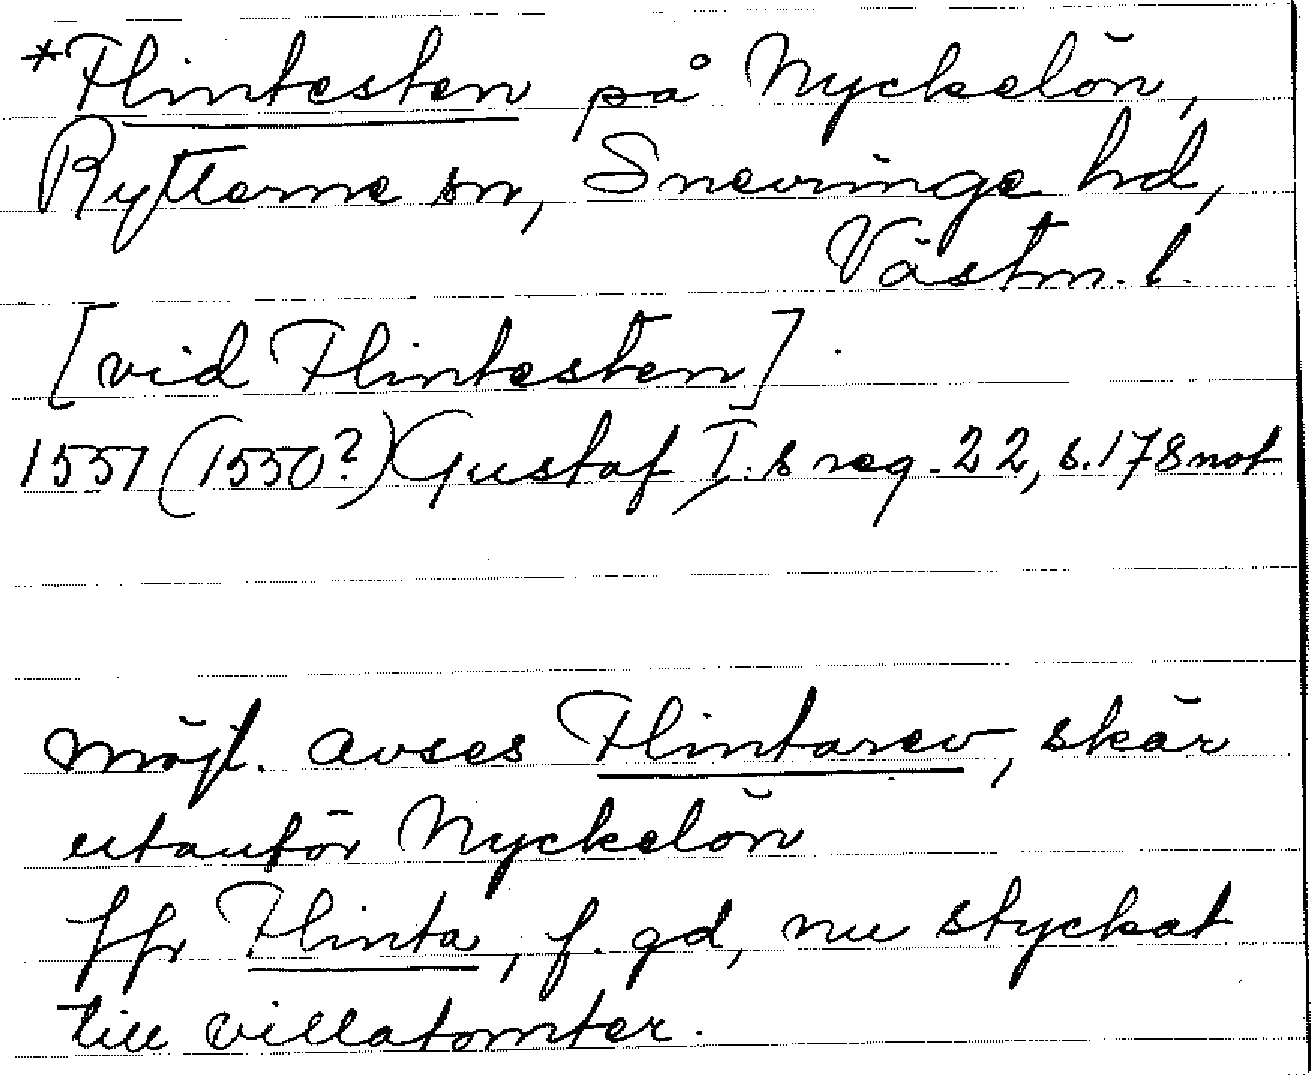 *Flintesten på Nyckelön,
Rytterne sn, Snevringe hd,
Västm. l.
[vid Flintesten]
1551 (1550?) Gustaf I:s reg. 22, s. 178 not
möjl. avses Flintarev, skär
utanför Nyckelön
jfr Flinta, f. gd, nu styckat
till villatomter.